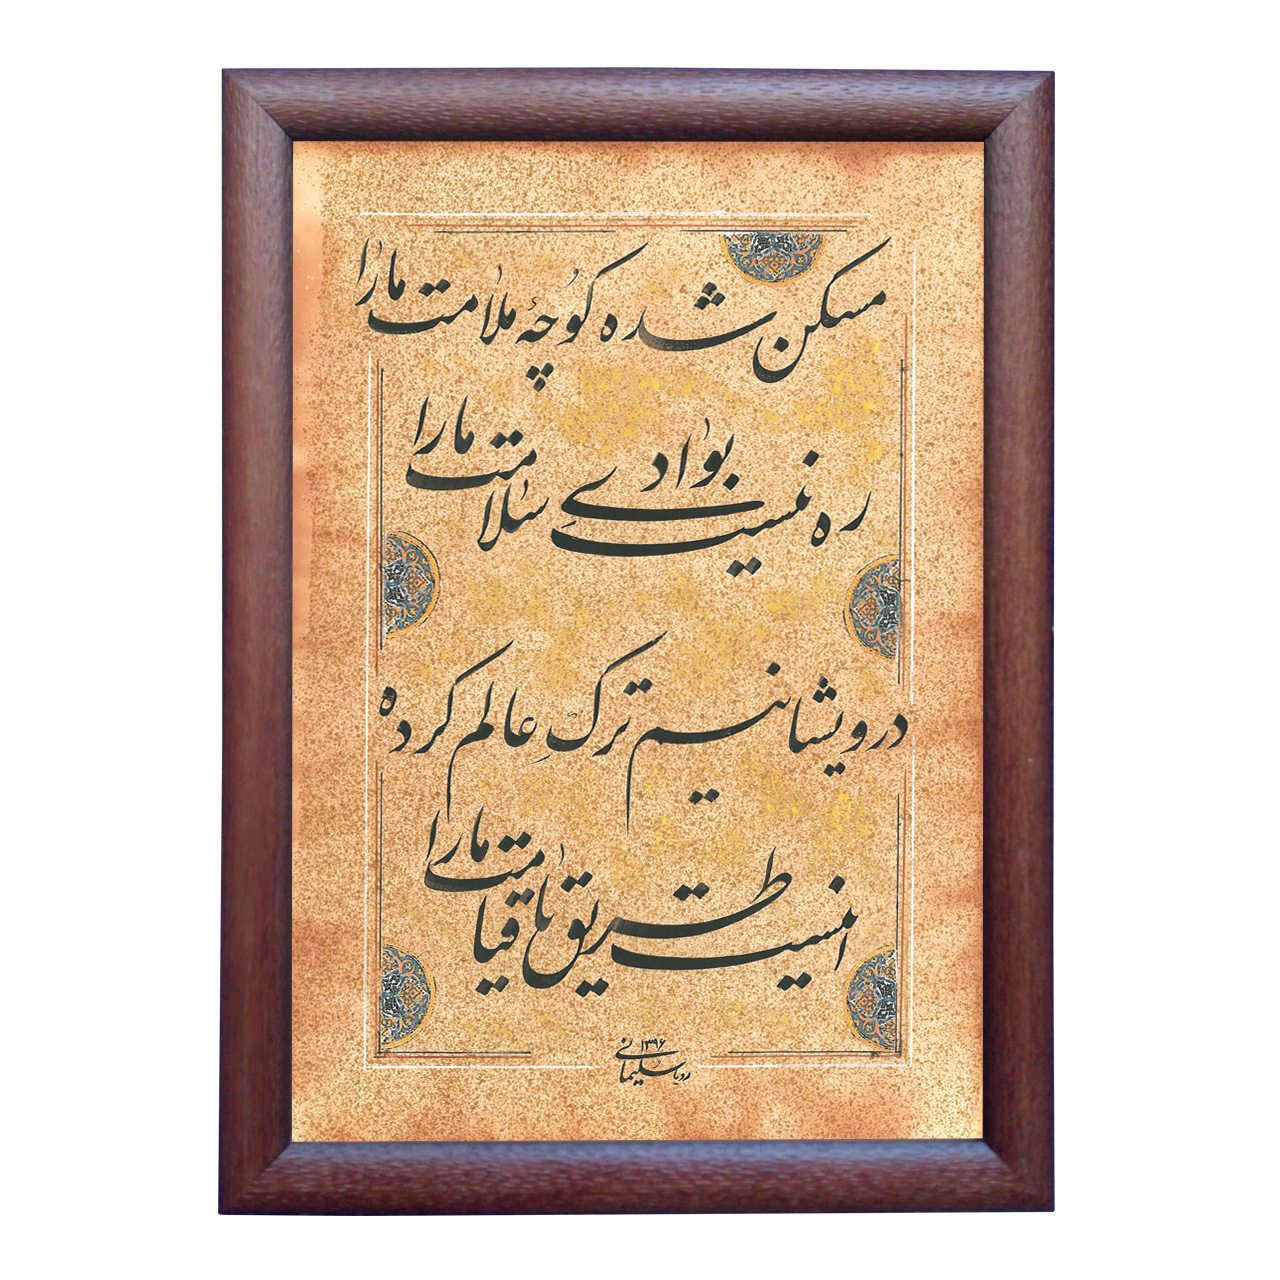 مسکن شده کوچهٔ ملامت ما را
ره نیست بوادیِ سلامت ما را
درویشانیم ترکِ عالم کرده
اینست طریق تا قیامت ما را
۱۳۹۶
رویا سلیمانی